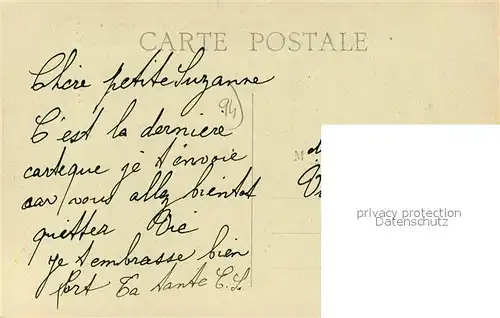 CARTE POSTALE
Chère petite Suzanne
94
C'est la derniere
carteque je t'envoie
car vous allez bientot
quitter Vic
je t'embrasse bien
fort Ta tante C.S.
M
privacy protection